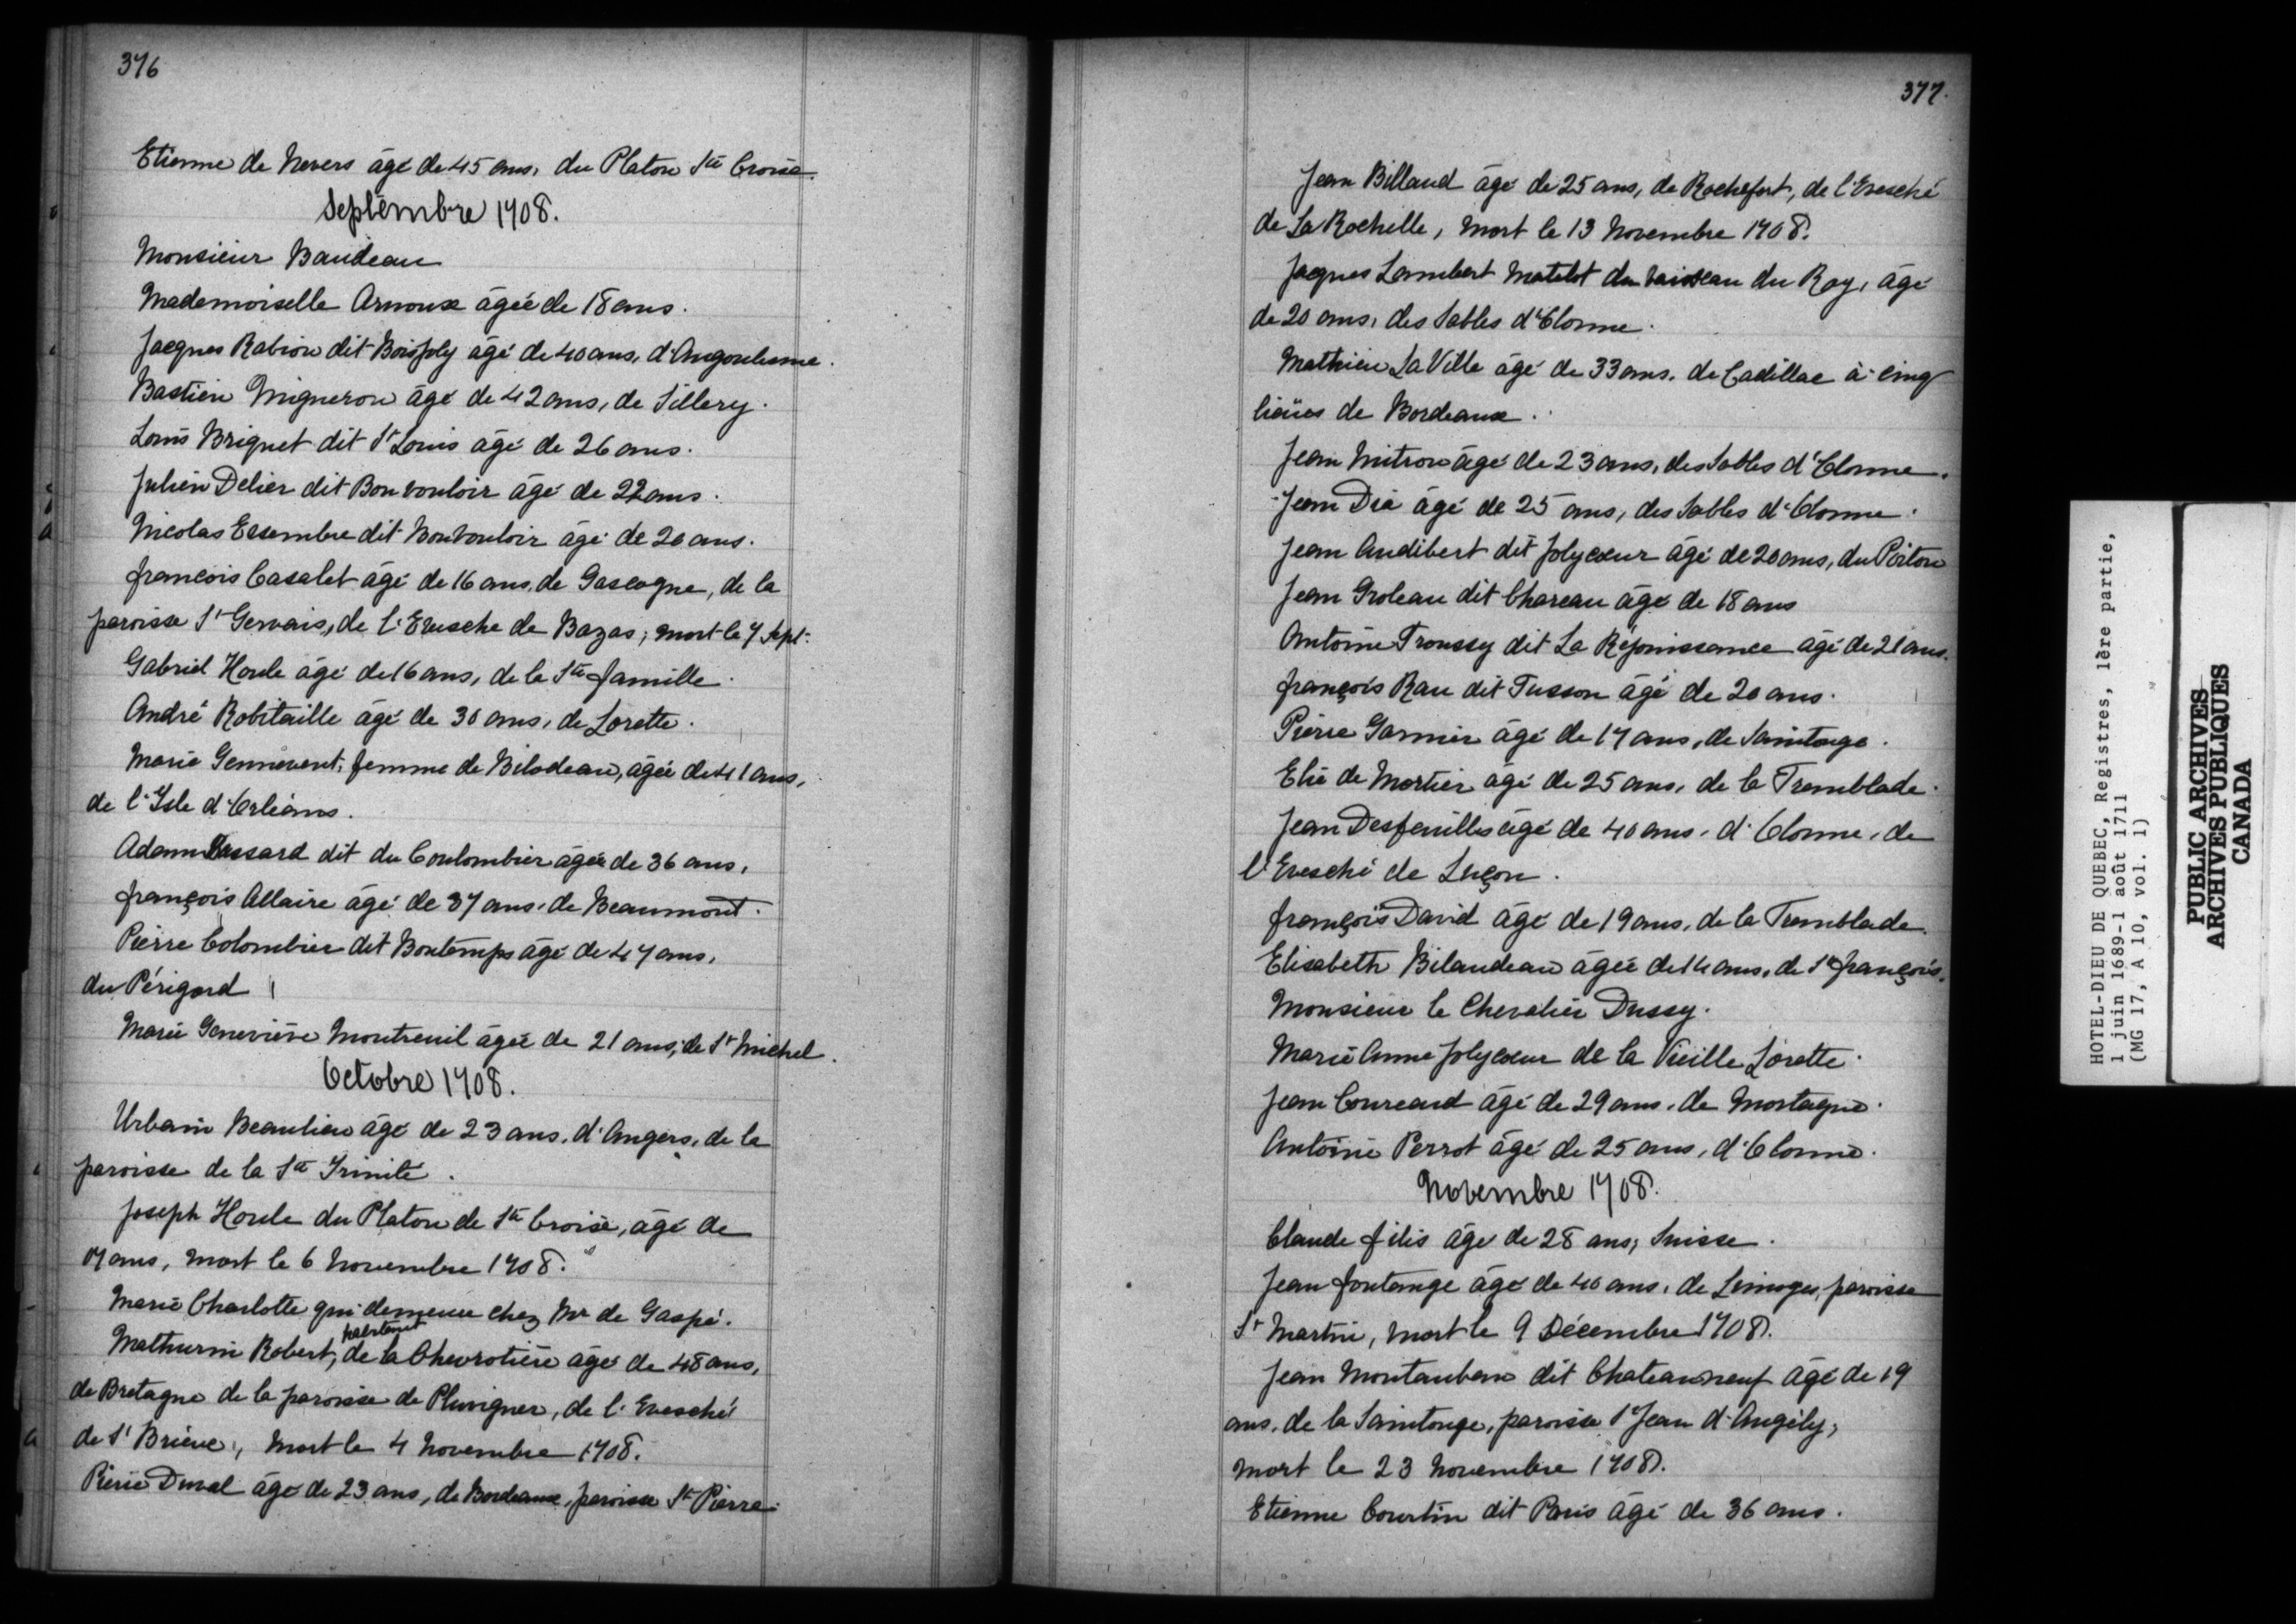 376
Etienne de Nevers âgé de 45 ans, du Platon Ste Croix.
Septembre 1708.
Monsieur Baudeau
Mademoiselle Arnoux âgée de 18 ans.
Jacques Rabion dit Boisjoly âgé de 40 ans, d'Angoulesme.
Bastien Migneron âgé de 42 ans, de Sillery.
Louis Briquet dit St Louis âgé de 26 ans.
Julien Delier dit Bonvouloir âgé de 22 ans.
Nicolas Essembre dit Bonvouloir âgé de 20 ans.
françois Casalet âgé de 16 ans, de Gascogne, de la
paroisse St Gervais, de l'Evesche de Bazas; mort le 7 Sept.
Gabriel Houle âgé de 16 ans, de la Ste famille.
André Robitaille âgé de 30 ans, de Lorette.
Marie Gennevent, femme de Bilodeau, âgée de 41 ans,
de l'Isle d'Orléans.
Adam Dassard dit du Coulombier âgée de 36 ans,
françois Allaire âgé de 37 ans, de Beaumont.
Pierre Colombier dit Bontemps âgé de 47 ans,
du Périgord
Marie Geneviève Montreuil âgée de 21 ans, de St Michel.
Octobre 1708.
Urbain Beaulieu âgé de 23 ans, d'Angers, de la
paroisse de la Ste Trinité.
Joseph Houle du Platon de Ste Croix, âgé de
17 ans, mort le 6 Novembre 1708.
Marie Charlotte qui demeure chez Mr de Gaspé.
habitant
Mathurin Robert, de la Chevrotière âgé de 48 ans,
de Bretagne de la paroisse de Pluvigner, de l'Evesché
de St Brieuc, mort le 4 Novembre 1708.
Pierre Duval âgé de 23 ans, de Bordeaux, paroisse St Pierre.
377.
Jean Billaud âgé de 25 ans, de Rochefort, de l'Evesché
de La Rochelle, mort le 13 Novembre 1708.
Jacques Lambert Matelot du vaisseau du Roy, âgé
de 20 ans, des Sables d'Olonne.
Mathieu La Ville âgé de 33 ans, de Cadillac à cinq
lieües de Bordeaux.
Jean Mitron âgé de 23 ans, des Sables d'Olonne.
Jean Dié âgé de 25 ans, des Sables d'Olonne.
Jean Audibert dit Jolycœur âgé de 20 ans, du Poitou
Jean Groleau dit Chareau âgé de 18 ans
Antoine Troussy dit La Réjouissance âgé de 21 ans.
françois Rau dit Tusson âgé de 20 ans.
Pierre Garnier âgé de 17 ans, de Saintonge.
Elie de Mortier âgé de 25 ans, de la Tremblade.
Jean Desfeuilles âgé de 40 ans, d'Olonne, de
l'Evesché de Luçon.
françois David âgé de 19 ans, de la Tremblade.
Elisabeth Bilaudeau âgée de 14 ans, de St françois.
Monsieur le Chevalier Dussy.
Marie Anne Jolycœur de la Vieille Lorette.
Jean Coureaud âgé de 29 ans, de Mortagne.
Antoine Perrot âgé de 25 ans, d'Olonne.
Novembre 1708.
Claude filis âgé de 28 ans, Suisse.
Jean fontange âgé de 40 ans, de Limoges, paroisse
St Martin, mort le 9 Décembre 1708.
Jean Montauban dit Chateauneuf âgé de 19
ans, de la Saintonge, paroisse St Jean d'Angély,
mort le 23 Novembre 1708.
Etienne Courtin dit Paris âgé de 36 ans.
HOTEL-DIEU DE QUEBEC, Registres, 1ère partie,
1 juin 1689-1 août 1711
(MG 17, A 10, vol. 1)
PUBLIC ARCHIVES
ARCHIVES PUBLIQUES
CANADA